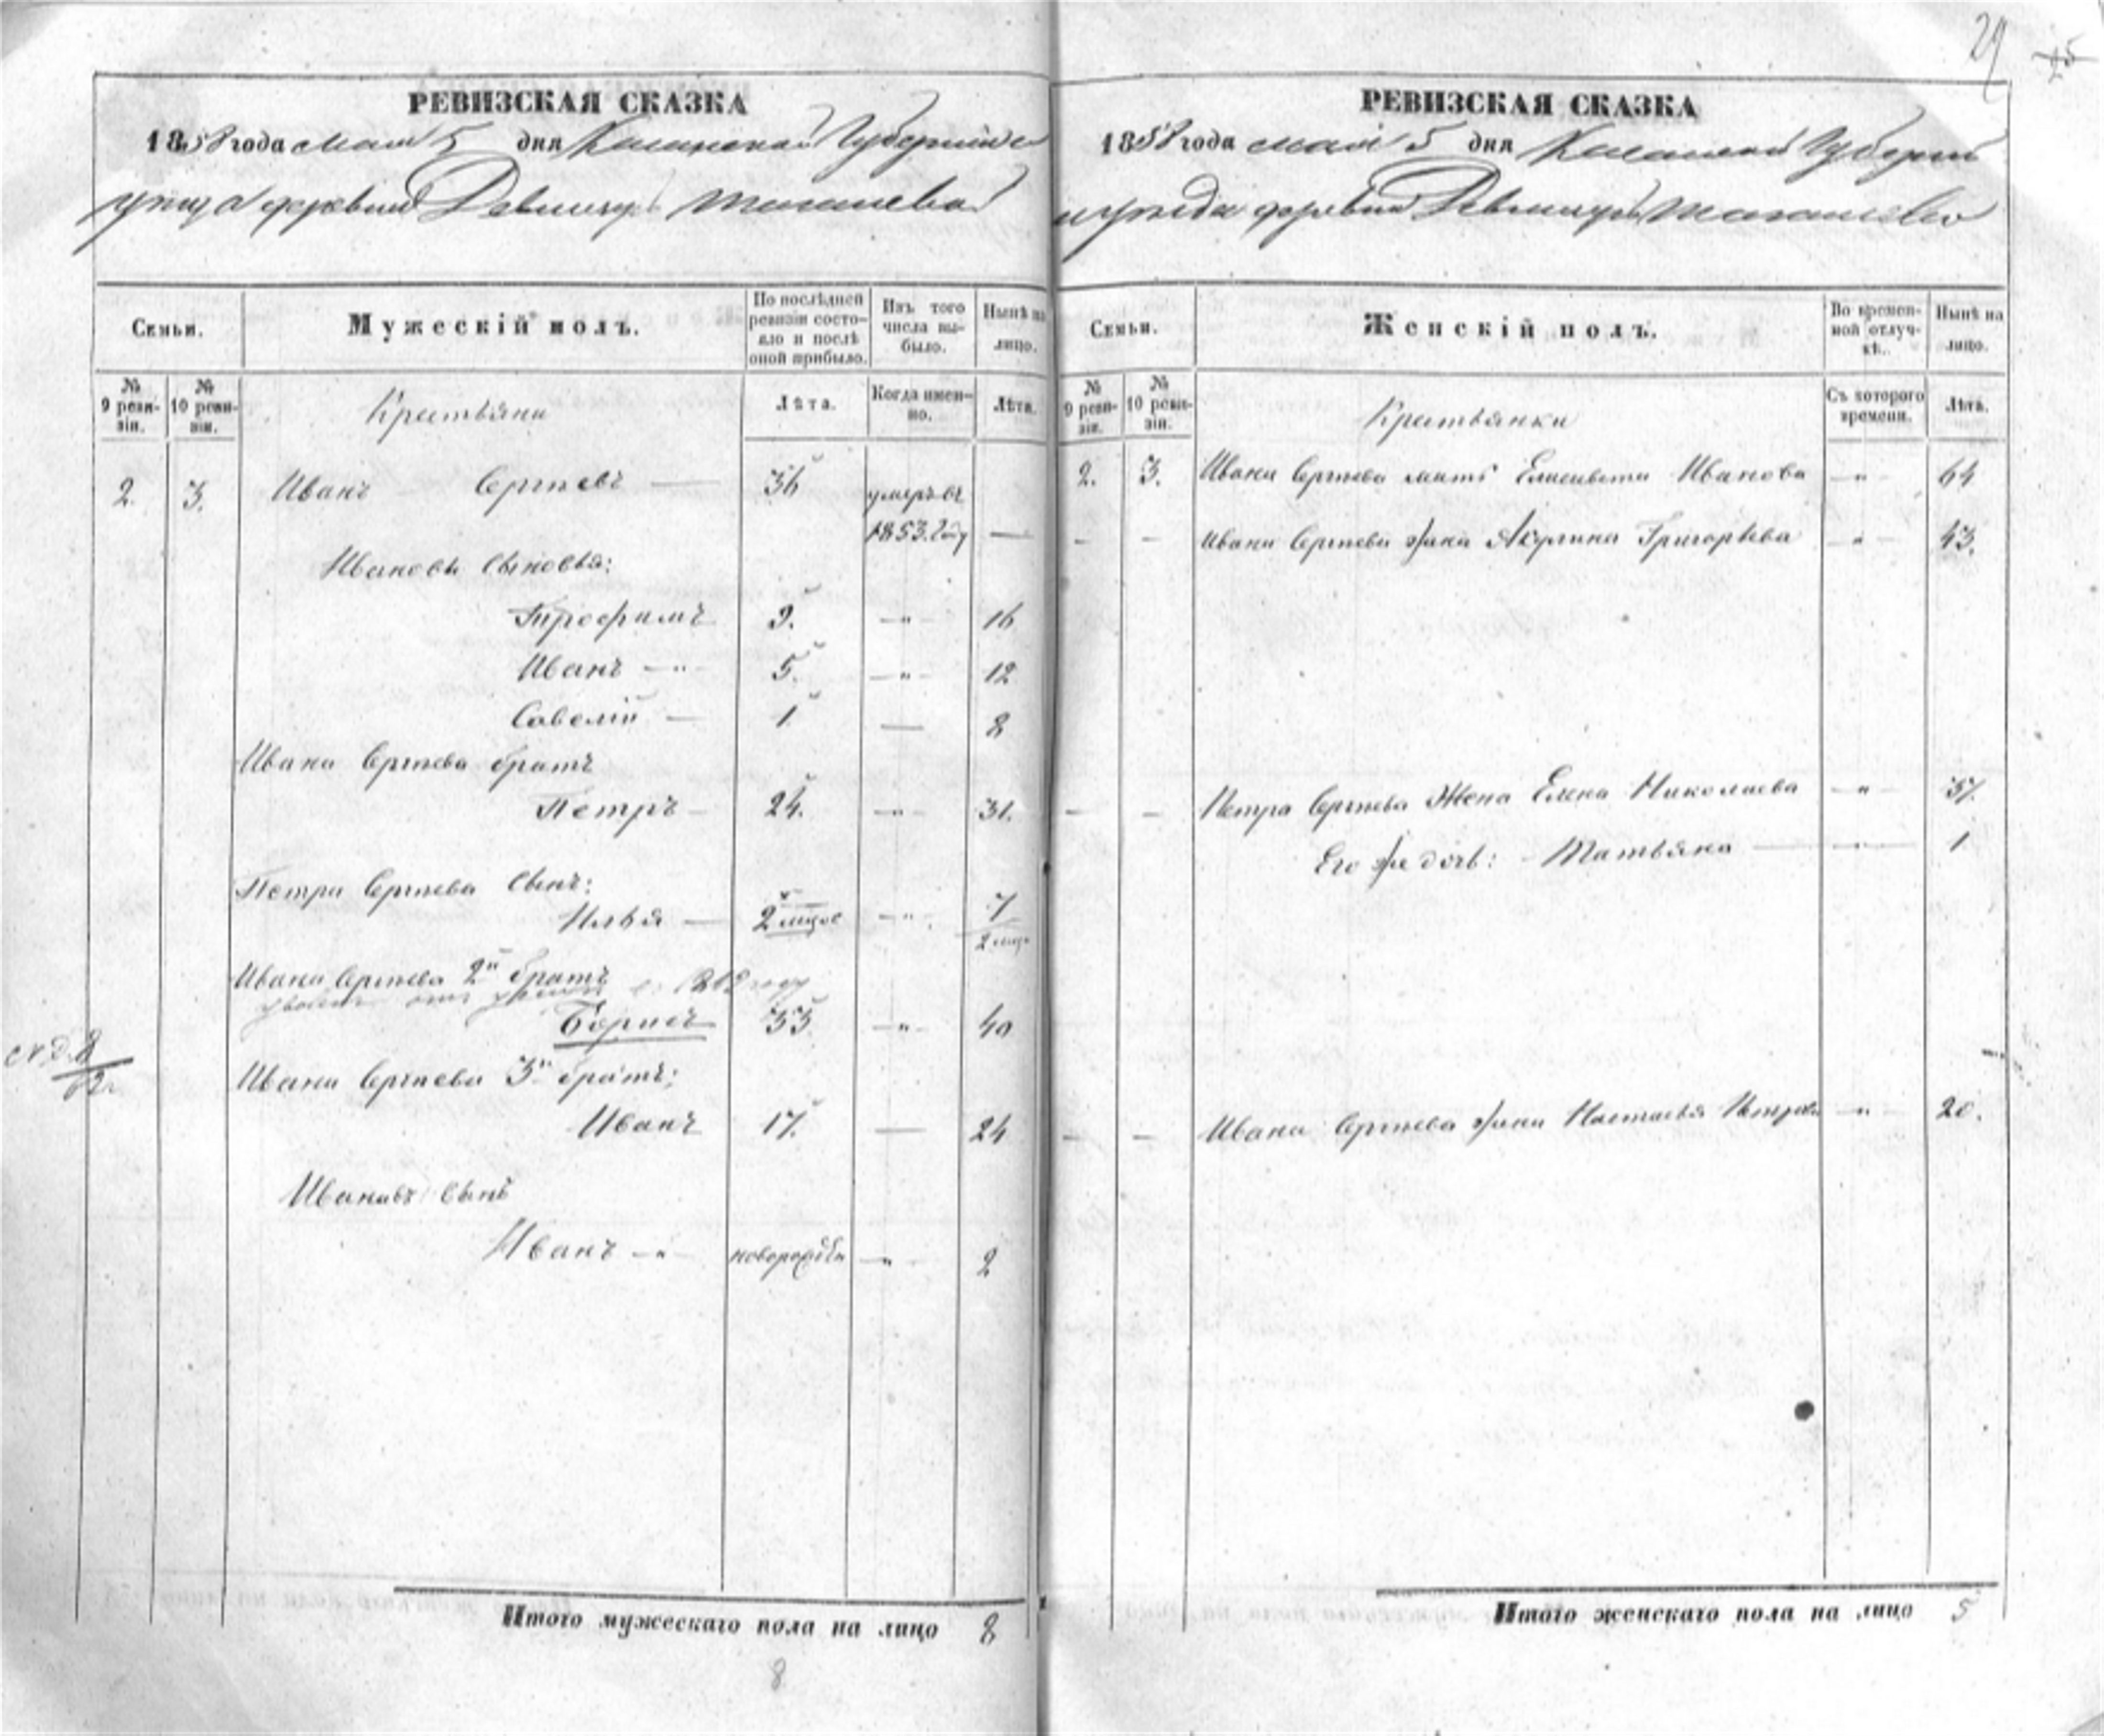 29
25
РЕВИЗСКАЯ СКАЗКА
1858 года мая 5 дня Казанской Губерніи и
уезда деревни
Семьи.
Мужескій полъ.
По послѣдней ревизіи состояло и послѣ оной прибыло.
Изъ того числа выбыло.
Нынѣ на лицо.
№ 9 ревизіи.
№ 10 ревизіи.
Крестьяни
Лѣта.
Когда именно.
Лѣта.
2. 3. Иванъ Сергѣевъ — 36 умеръ въ
1853. году —
Ивановы сыновья:
Трофимъ 9. — " — 16
Иванъ — " — 5. — " — 12
Савелій — 1 — 8
Ивана Сергѣева братъ
Петръ — 24. — " — 31.
Петра Сергѣева сынъ:
Илья — 2 мѣсяс — " — 7
2 мѣся
Ивана Сергѣева 2й братъ
Борисъ 33 — " — 40
Ивана Сергѣева 3й братъ;
Иванъ 17. — 24
Ивановъ сынъ
Иванъ — " — новорожден — " — 2
Итого мужескаго пола на лицо 8
8
РЕВИЗСКАЯ СКАЗКА
1858 года мая 5 дня Казанской Губерніи
и уѣзда деревни
Семьи.
Женскій полъ.
Во временной отлучкѣ.
Нынѣ на лицо.
№ 9 ревизіи.
№ 10 ревизіи.
Крестьянки
Съ котораго времени.
Лѣта.
2. 3. Ивана Сергѣева мать Елисавета Иванова — " — 64
— — Ивана Сергѣева жена Акулина Григорьева — " — 43.
— — Петра Сергѣева Жена Елена Николаева — " — 37.
Его же дочь: — Татьяна — " — 1
— — Ивана Сергѣева жена Настасья Петрова — " — 20.
Итого женскаго пола на лицо 5